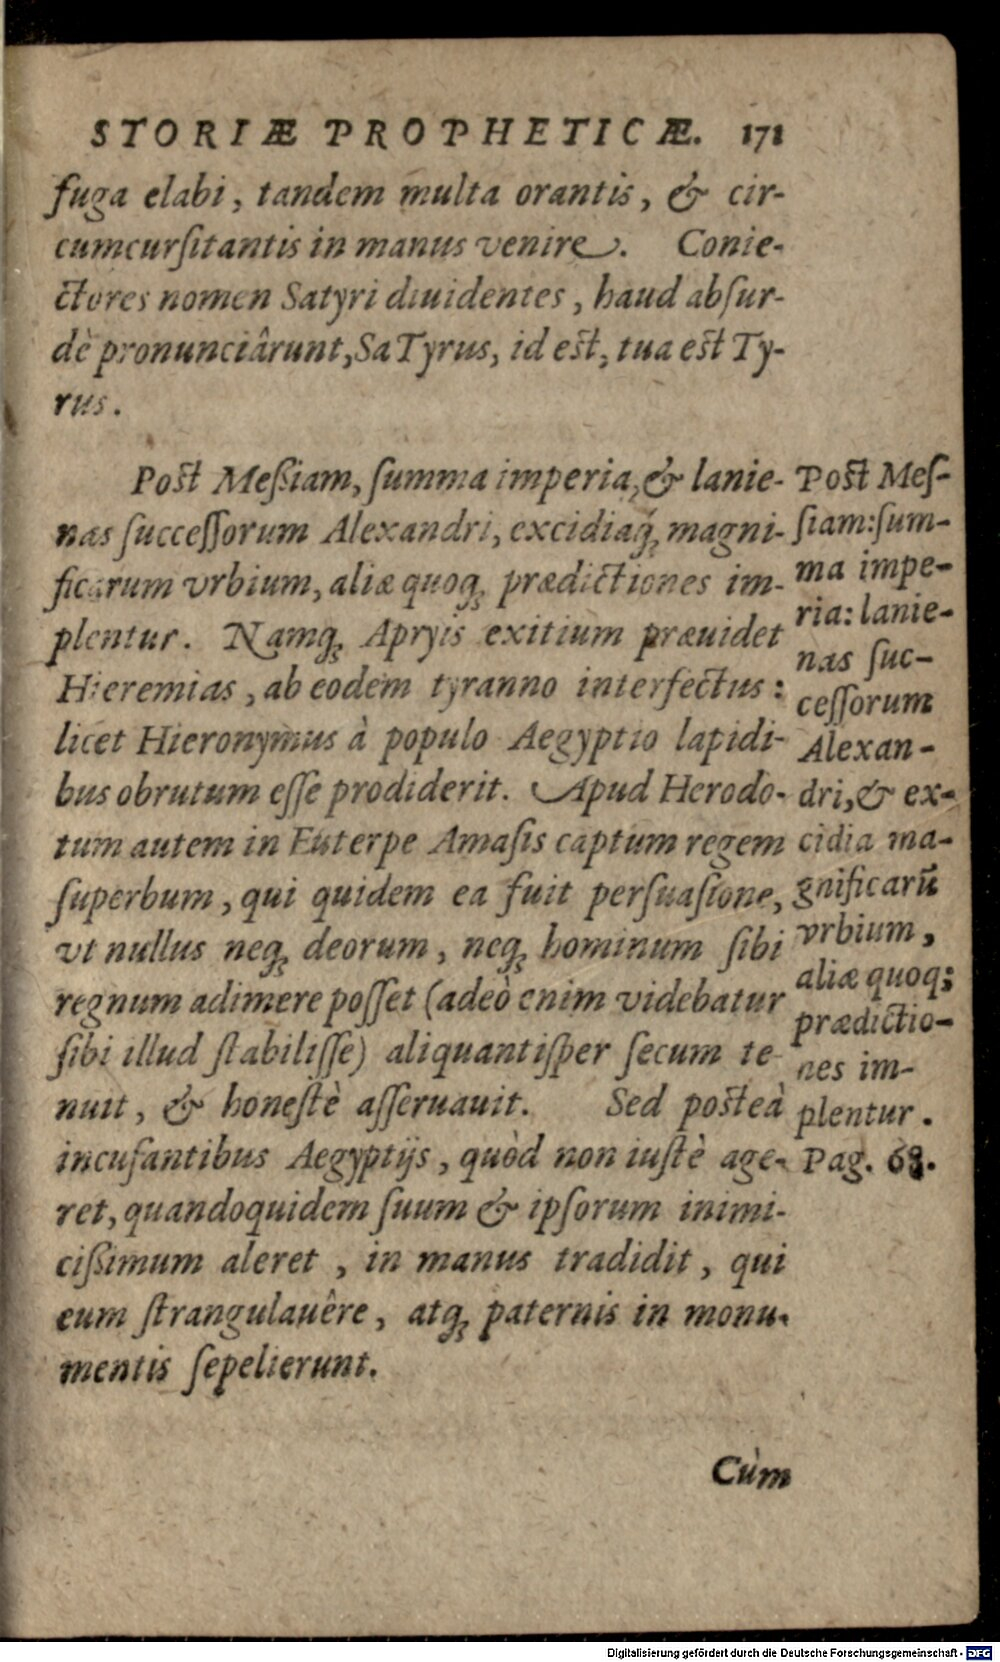 STORIÆ PROPHETICÆ. 171
fuga elabi, tandem multa orantis, & cir-
cumcurſitantis in manus venire. Conie-
ctores nomen Satyri diuidentes, haud abſur-
dè pronunciârunt, Sa Tyrus, id est, tua est Ty-
rus.
Post Meßiam, ſumma imperia, & lanie-
nas ſucceſſorum Alexandri, excidiaq́; magni-
ficarum vrbium, aliæ quoq; prædictiones im-
plentur. Namq; Apryis exitium præuidet
Hieremias, ab eodem tyranno interfectus:
licet Hieronymus à populo Aegyptio lapidi-
bus obrutum eſſe prodiderit. Apud Herodo-
tum autem in Euterpe Amaſis captum regem
ſuperbum, qui quidem ea fuit perſuaſione,
vt nullus neq; deorum, neq; hominum ſibi
regnum adimere poſſet (adeò enim videbatur
ſibi illud ſtabiliſſe) aliquantiſper ſecum te-
nuit, & honeſtè aſſeruauit. Sed posteà
incuſantibus Aegyptijs, quòd non iuſtè age-
ret, quandoquidem ſuum & ipſorum inimi-
cißimum aleret, in manus tradidit, qui
eum ſtrangulauêre, atq; paternis in monu-
mentis ſepelierunt.
Cùm
Post Meſ-
ſiam: ſum-
ma impe-
ria: lanie-
nas ſuc-
ceſſorum
Alexan-
dri, & ex-
cidia ma-
gnificarũ
vrbium,
aliæ quoq;
prædictio-
nes im-
plentur.
Pag. 68.
Digitalisierung gefördert durch die Deutsche Forschungsgemeinschaft - DFG